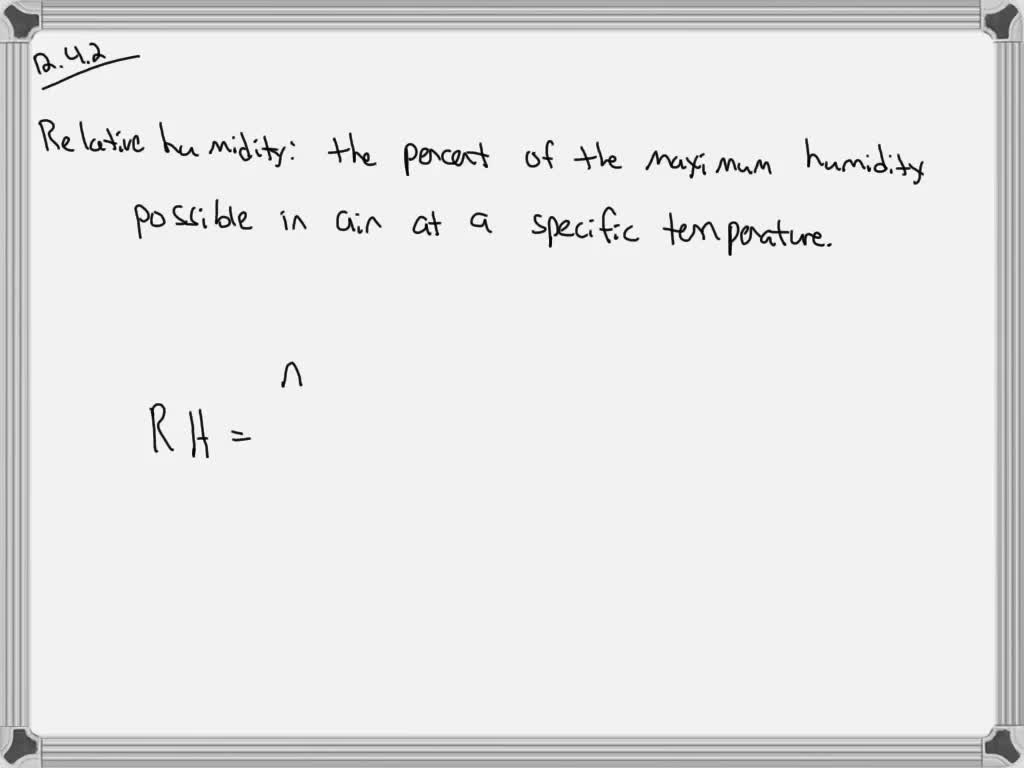 12.4.2
Relative humidity: the percent of the maximum humidity
possible in air at a specific temperature.
n
RH =